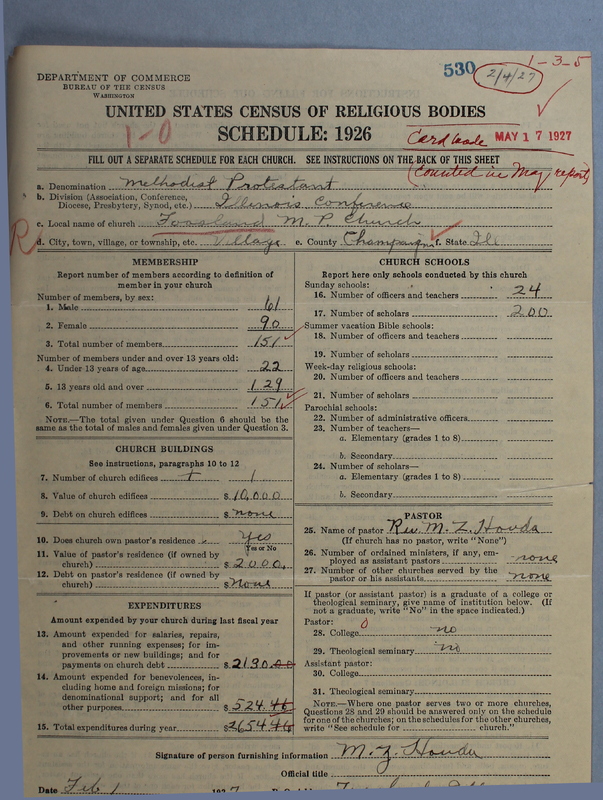 530
2/4/27
1-3-5
DEPARTMENT OF COMMERCE
BUREAU OF THE CENSUS
WASHINGTON
UNITED STATES CENSUS OF RELIGIOUS BODIES
1-0
SCHEDULE: 1926
Card made MAY 17 1927
FILL OUT A SEPARATE SCHEDULE FOR EACH CHURCH. SEE INSTRUCTIONS ON THE BACK OF THIS SHEET
(counted in May report)
a. Denomination Methodist Protestant
b. Division (Association, Conference,
Diocese, Presbytery, Synod, etc.) Illinois Conference
c. Local name of church Foosland M. P. Church
R
d. City, town, village, or township, etc. Village e. County Champaign f. State Ill
MEMBERSHIP
Report number of members according to definition of
member in your church
Number of members, by sex:
1. Male 61
2. Female 90
3. Total number of members 151
Number of members under and over 13 years old:
4. Under 13 years of age 22
5. 13 years old and over 129
6. Total number of members 151
NOTE.—The total given under Question 6 should be
same as the total of males and females given under Question 3.
CHURCH BUILDINGS
See instructions, paragraphs 10 to 12
7. Number of church edifices 1
8. Value of church edifices $10,000
9. Debt on church edifices $none
10. Does church own pastor's residence yes
Yes or No
11. Value of pastor's residence (if owned by
church) $2000.
12. Debt on pastor's residence (if owned by
church) $None
EXPENDITURES
Amount expended by your church during last fiscal year
13. Amount expended for salaries, repairs,
and other running expenses; for im-
provements or new buildings; and for
payments on church debt $2130.00
14. Amount expended for benevolences, in-
cluding home and foreign missions; for
denominational support; and for all
other purposes $524.46
15. Total expenditures during year $2654.46
CHURCH SCHOOLS
Report here only schools conducted by this church
Sunday schools:
16. Number of officers and teachers 24
17. Number of scholars 200
Summer vacation Bible schools:
18. Number of officers and teachers
19. Number of scholars
Week-day religious schools:
20. Number of officers and teachers
21. Number of scholars
Parochial schools:
22. Number of administrative officers
23. Number of teachers—
a. Elementary (grades 1 to 8)
b. Secondary
24. Number of scholars—
a. Elementary (grades 1 to 8)
b. Secondary
PASTOR
25. Name of pastor Rev M. Z. Honda
(If church has no pastor, write "None")
26. Number of ordained ministers, if any, em-
ployed as assistant pastors none
27. Number of other churches served by the
pastor or his assistants none
If pastor (or assistant pastor) is a graduate of a college or
theological seminary, give name of institution below. (If
not a graduate, write "No" in the space indicated.)
Pastor: 0
28. College no
29. Theological seminary no
Assistant pastor:
30. College
31. Theological seminary
NOTE.—Where one pastor serves two or more churches,
Questions 28 and 29 should be answered only on the schedule
for one of the churches; on the schedules for the other churches,
write "See schedule for church."
Signature of person furnishing information M. Z. Honda
Official title
Date Feb 1 1927